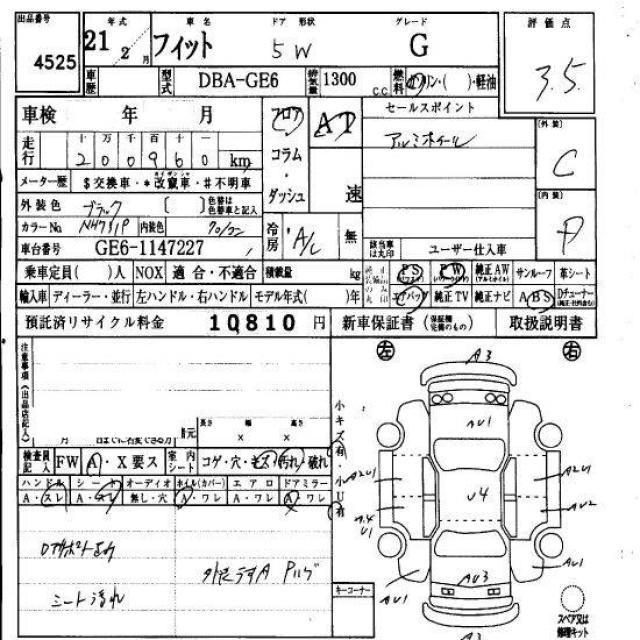 出品番号 年式 車名 ドア形状 グレード 評価点
4525 21 2月 フィット 5W G 3.5
車歴 型式 DBA-GE6 排気量 1300 C.C 燃料 ガソリン・( )・軽油
車検 年 月 フロア AT セールスポイント
十万千百十一 コラム アルミホイール (外装)
走行 200960 km ・ダッシュ C
メーター歴 $交換車・*改竄車・#不明車 速
外装色 ブラック [ ] 色替は色替車と記入 (内装)
カラーNo NH731P 内装色 冷房 A/C 無 D
車台番号 GE6-1147227 該当車は丸印 ユーザー仕入車
乗車定員( )人 NOX 適合・不適合 積載量 kg PS PW 純正AW サンルーフ 革シート
輸入車 ディーラー・並行 左ハンドル・右ハンドル モデル年式( )年 エアバッグ 純正TV 純正ナビ ABS Dチューナー
預託済リサイクル料金 10810円 新車保証書 取扱説明書
注意事項(出品店記入) 左 右
A3
長さ 幅 高さ
× ×
AU1
検査員記入 FW A・X要ス 室内シート コゲ・穴・キズ・汚れ・破れ
小キズ有・小U有
ハンドル シート オーディオ ホイル(カバー) エアロ ドアミラー
A・スレ A・スレ 無し・穴 A・ワレ A・ワレ A・ワレ
A2U1 U4 A2U1
AU2
シート汚れ
AU1 AU3 AU1
キーコーナー
スペア又は修理キット
A3